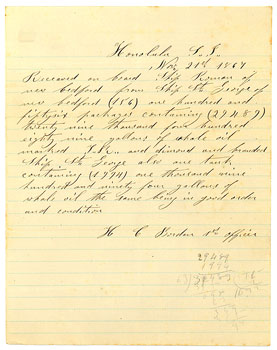 Honolulu S. I.
Nov 21st 1867
Received on board Ship Roman of
new bedford from Ship St George of
new bedford (156) one hundred and
fiftysix packages containing (29489)
twenty nine thousand four hundred
eighty nine gallons of whale oil
marked and dimond and branded
Ship St George also one tank
containing (1994) one thousand nine
hundred and ninety four gallons of
whale oil the same being in good order
and condition
H C 1st officer
29489
1994